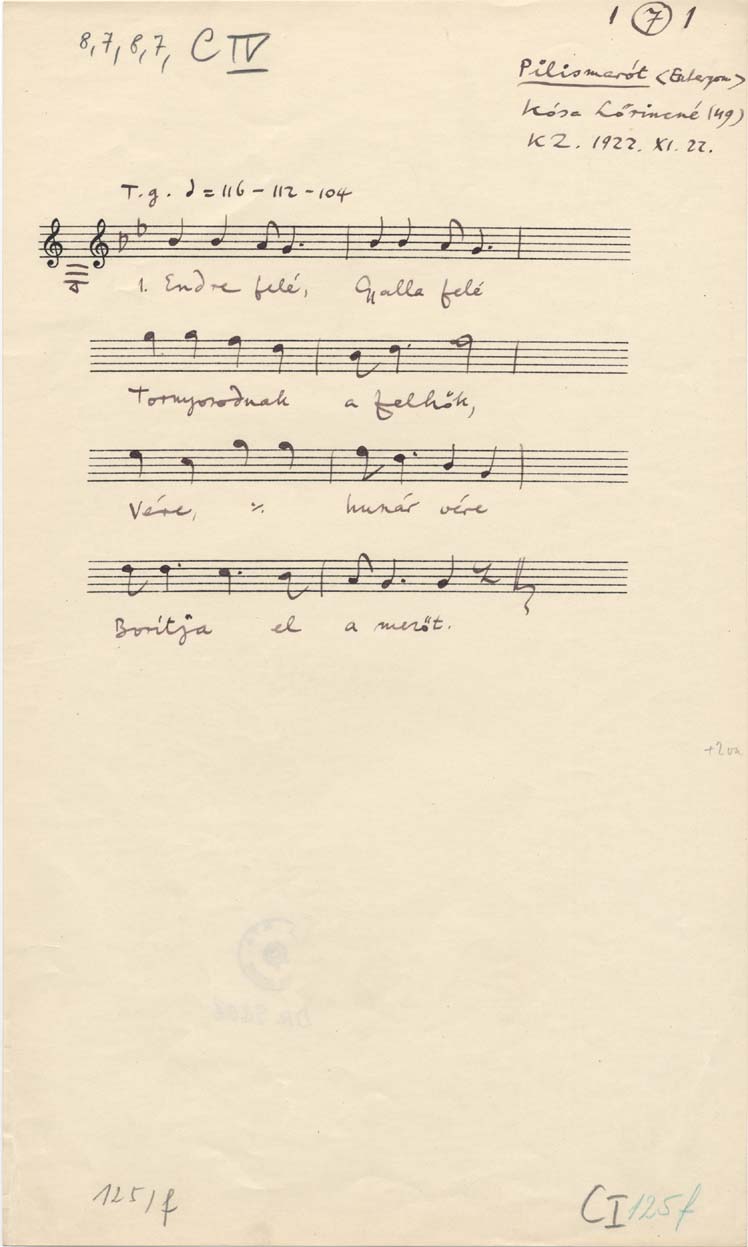 8, 7, 8, 7, C IV
1 7 1
Pilismarót (Esztergom)
Kósa Lőrincné (49)
KZ. 1922. XI. 22.
T. g. = 116 - 112 - 104
1. Endre felé, Gyalla felé
Tornyosodnak a felhők,
Vére, ·/. huszár vére
Borítja el a mezőt.
125/f
C I 125 f